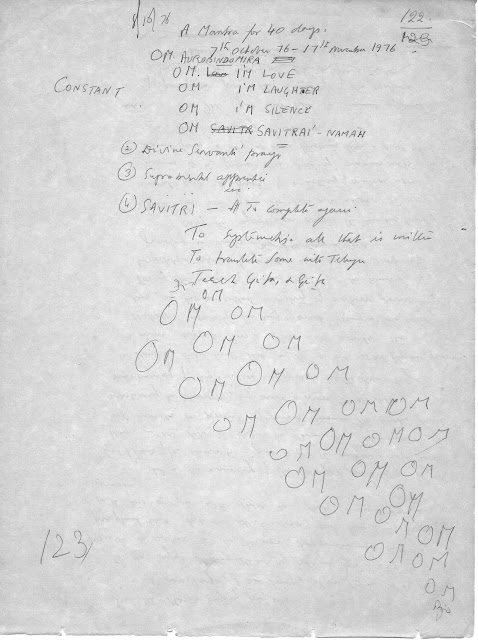 8/10/76
122.
A Mantra for 40 days.
7th October 76 - 17th November 1976
OM. AUROBINDOMIRA
OM. I'M LOVE
CONSTANT
OM I'M LAUGHTER
OM I'M SILENCE
OM SAVITRAI' - NAMAH
② Divine Servants' prayer
③ Supramental apprentice
④ SAVITRI - To complete again
To Systematise all that is written
To translate some into Telugu
Teach Gita, &
OM
OM OM
OM OM
OM
OM OM OM
OM OM OM OM
OM OM OM OM
OM OM OM
OM OM
OM
OM OM
OM
123